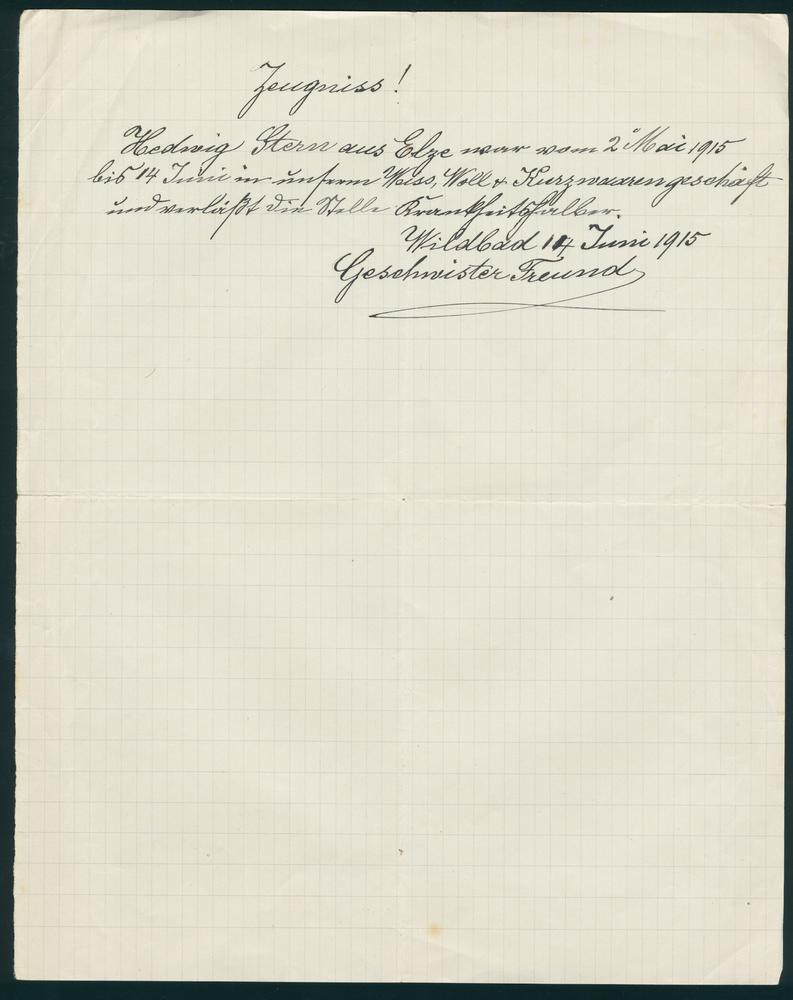 Zeugniss!
Hedwig Stern aus Elze war vom 2 Mai 1915
bis 14 Juni in unserm Weiss, Woll & Kurzwaarengeschäft
und verläßt die Stelle Krankheitshalber.
Wildbad 14 Juni 1915
Geschwister Freund